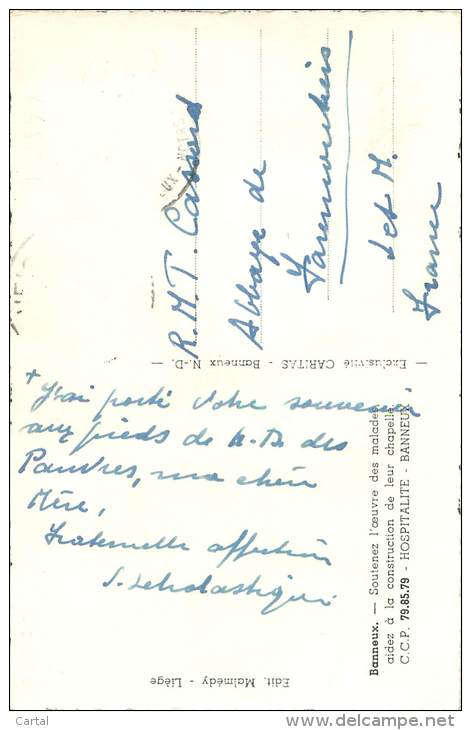 +
J'ai porté votre souvenir
aux pieds de N. D. des
Pauvres, ma chère
Mère,
fraternelle affection
S. Scholastique
R. M. T. Cassard
Abbaye de
Faremoutiers
S et M.
France
— Exclusivité CARITAS - Banneux N.-D. —
Banneux. — Soutenez l'œuvre des malades
aidez à la construction de leur chapelle
C.C.P. 79.85.79 - HOSPITALITE - BANNEUX
Edit. Malmédy - Liège
Cartal
www.delcampe.net